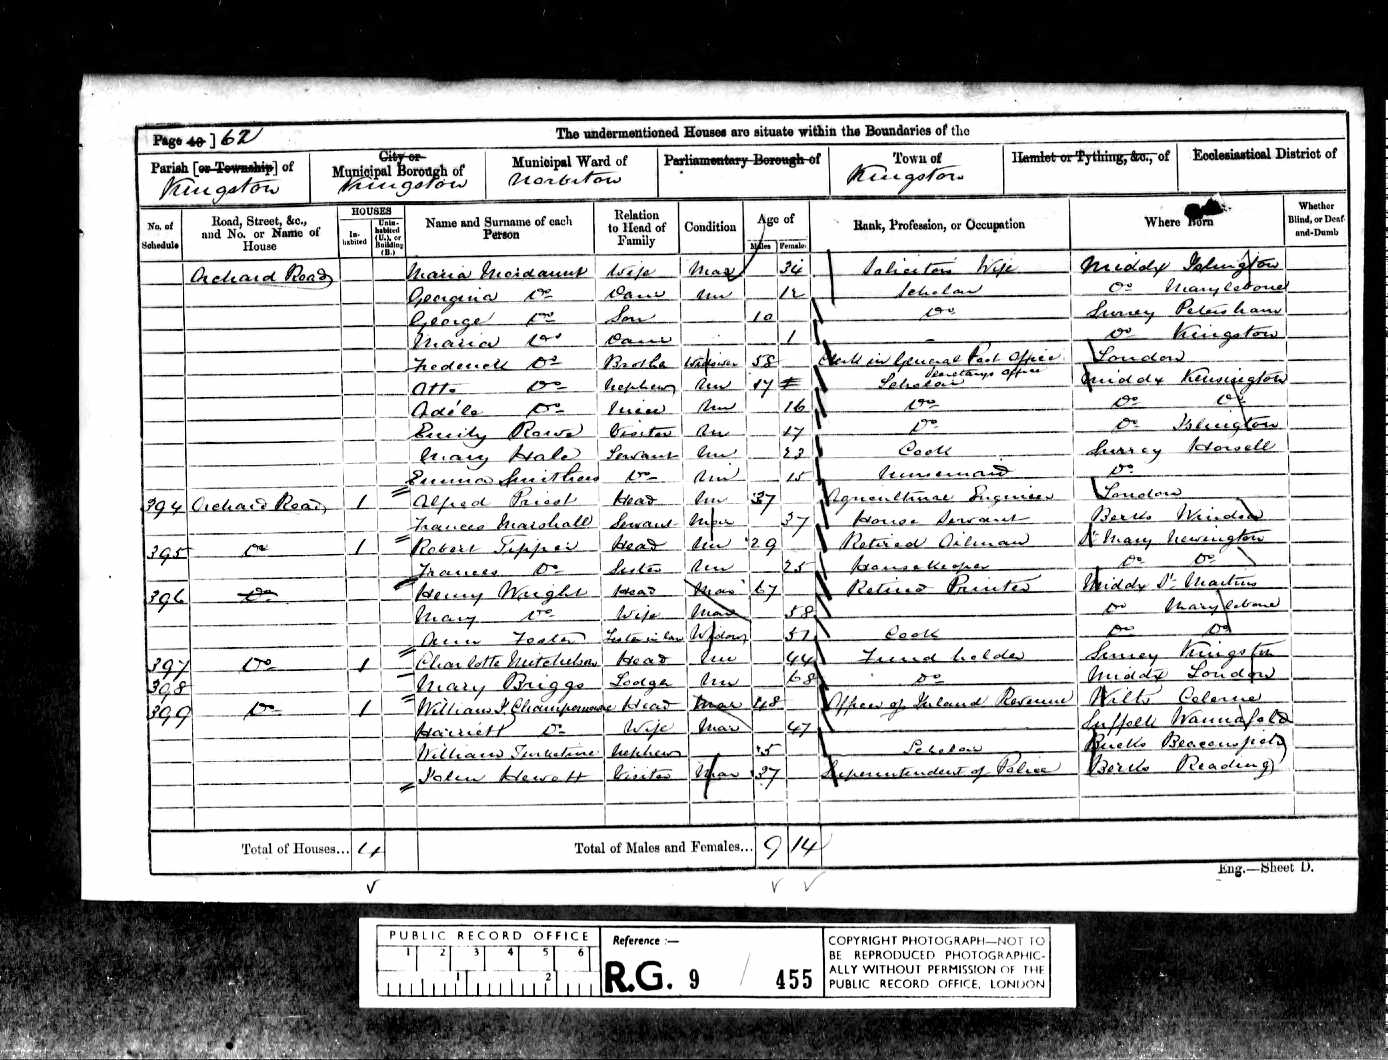 Page 40 ] 62
The undermentioned Houses are situate within the Boundaries of the
Parish [or Township] of Kingston
City or Municipal Borough of Kingston
Municipal Ward of Norbiton
Parliamentary Borough of
Town of Kingston
Hamlet or Tything, &c., of
Ecclesiastical District of
No. of Schedule
Road, Street, &c., and No. or Name of House
HOUSES
In-habited
Unin-habited (U.), or Building (B.)
Name and Surname of each Person
Relation to Head of Family
Condition
Age of
Males
Females
Rank, Profession, or Occupation
Where Born
Whether Blind, or Deaf-and-Dumb
Orchard Road Maria Mordaunt Wife Mar 34 Solicitors Wife Middx Islington
Georgina Do Daur Un 12 Scholar Do Marylebone
George Do Son 10 Do Surrey Petersham
Maria Do Daur 1 Do Kingston
Frederick Do Brother Widower 58 Clerk in General Post Office London
Secretarys Office
Otto Do Nephew Un 17 Scholar Middx Kensington
Adéle Do Niece Un 16 Do Do Do
Emily Rowe Visitor Un 17 Do Do Islington
Mary Hale Servant Un 23 Cook Surrey Horsell
Emma Smithers Do Un 15 Nursemaid Do
394 Orchard Road 1 Alfred Priest Head Un 37 Agricultural Engineer London
Frances Marshall Servant Mar 37 House Servant Berks Windsor
395 Do 1 Robert Tipper Head Un 29 Retired Oilman St Mary Newington
Frances Do Sister Un 25 Housekeeper Do Do
396 Do Henry Wright Head Mar 67 Retired Printer Middx St Martins
Mary Do Wife Mar 58 Do Marylebone
Ann Foster Sister in law Widow 51 Cook Do Do
397 Do 1 Charlotte Mitchelson Head Un 44 Fund holder Surrey Kingston
398 Mary Briggs Lodger Un 68 Do Middx London
399 Do 1 William Champernowne Head Mar 48 Officer of Inland Revenue Wilts Colerne
Harriett Do Wife Mar 47 Suffolk
William Nephew 5 Scholar Bucks Beaconsfield
John Hewett Visitor Mar 37 Superintendent of Police Berks Reading
Total of Houses... 4
Total of Males and Females... 9 14
Eng.—Sheet D.
PUBLIC RECORD OFFICE
1 2 3 4 5 6
1 2
Reference :—
R.G. 9 / 455
COPYRIGHT PHOTOGRAPH—NOT TO
BE REPRODUCED PHOTOGRAPHIC-
ALLY WITHOUT PERMISSION OF THE
PUBLIC RECORD OFFICE, LONDON